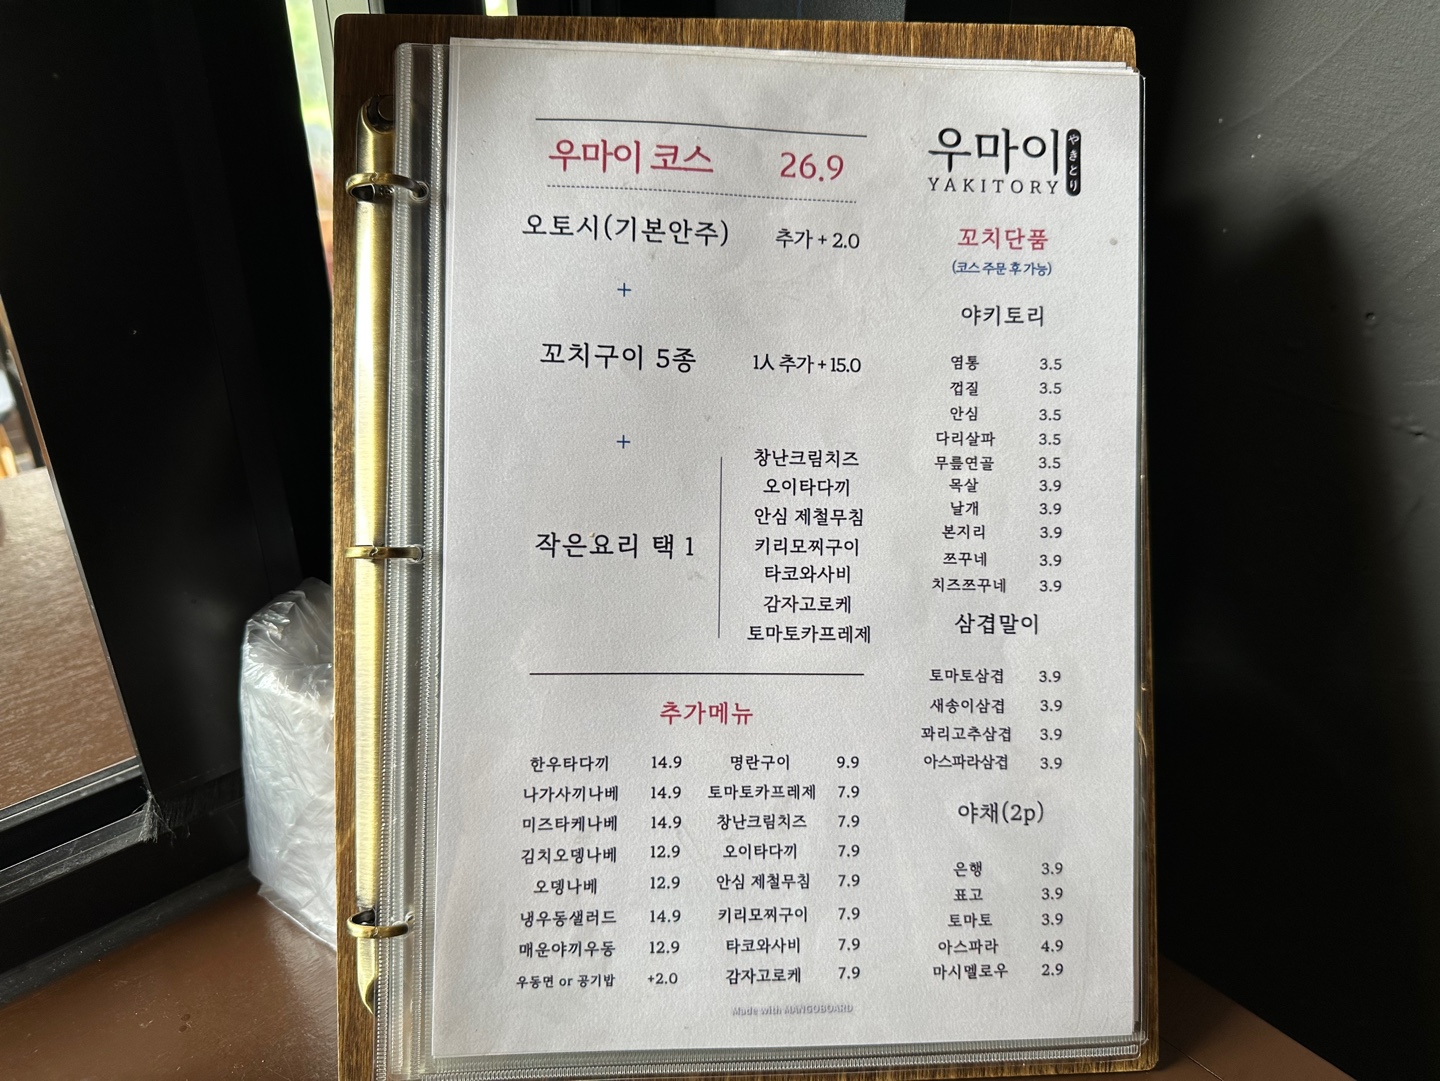 우마이 코스 26.9
오토시(기본안주) 추가 + 2.0
+
꼬치구이 5종 1人 추가 + 15.0
+
작은요리 택 1
창난크림치즈
오이타다끼
안심 제철무침
키리모찌구이
타코와사비
감자고로케
토마토카프레제
추가메뉴
한우타다끼 14.9
나가사끼나베 14.9
미즈타케나베 14.9
김치오뎅나베 12.9
오뎅나베 12.9
냉우동샐러드 14.9
매운야끼우동 12.9
우동면 or 공기밥 +2.0
명란구이 9.9
토마토카프레제 7.9
창난크림치즈 7.9
오이타다끼 7.9
안심 제철무침 7.9
키리모찌구이 7.9
타코와사비 7.9
감자고로케 7.9
Made with MANGOBOARD
우마이
やきとり
YAKITORY
꼬치단품
(코스 주문 후 가능)
야키토리
염통 3.5
껍질 3.5
안심 3.5
다리살파 3.5
무릎연골 3.5
목살 3.9
날개 3.9
본지리 3.9
쯔꾸네 3.9
치즈쯔꾸네 3.9
삼겹말이
토마토삼겹 3.9
새송이삼겹 3.9
꽈리고추삼겹 3.9
아스파라삼겹 3.9
야채(2p)
은행 3.9
표고 3.9
토마토 3.9
아스파라 4.9
마시멜로우 2.9